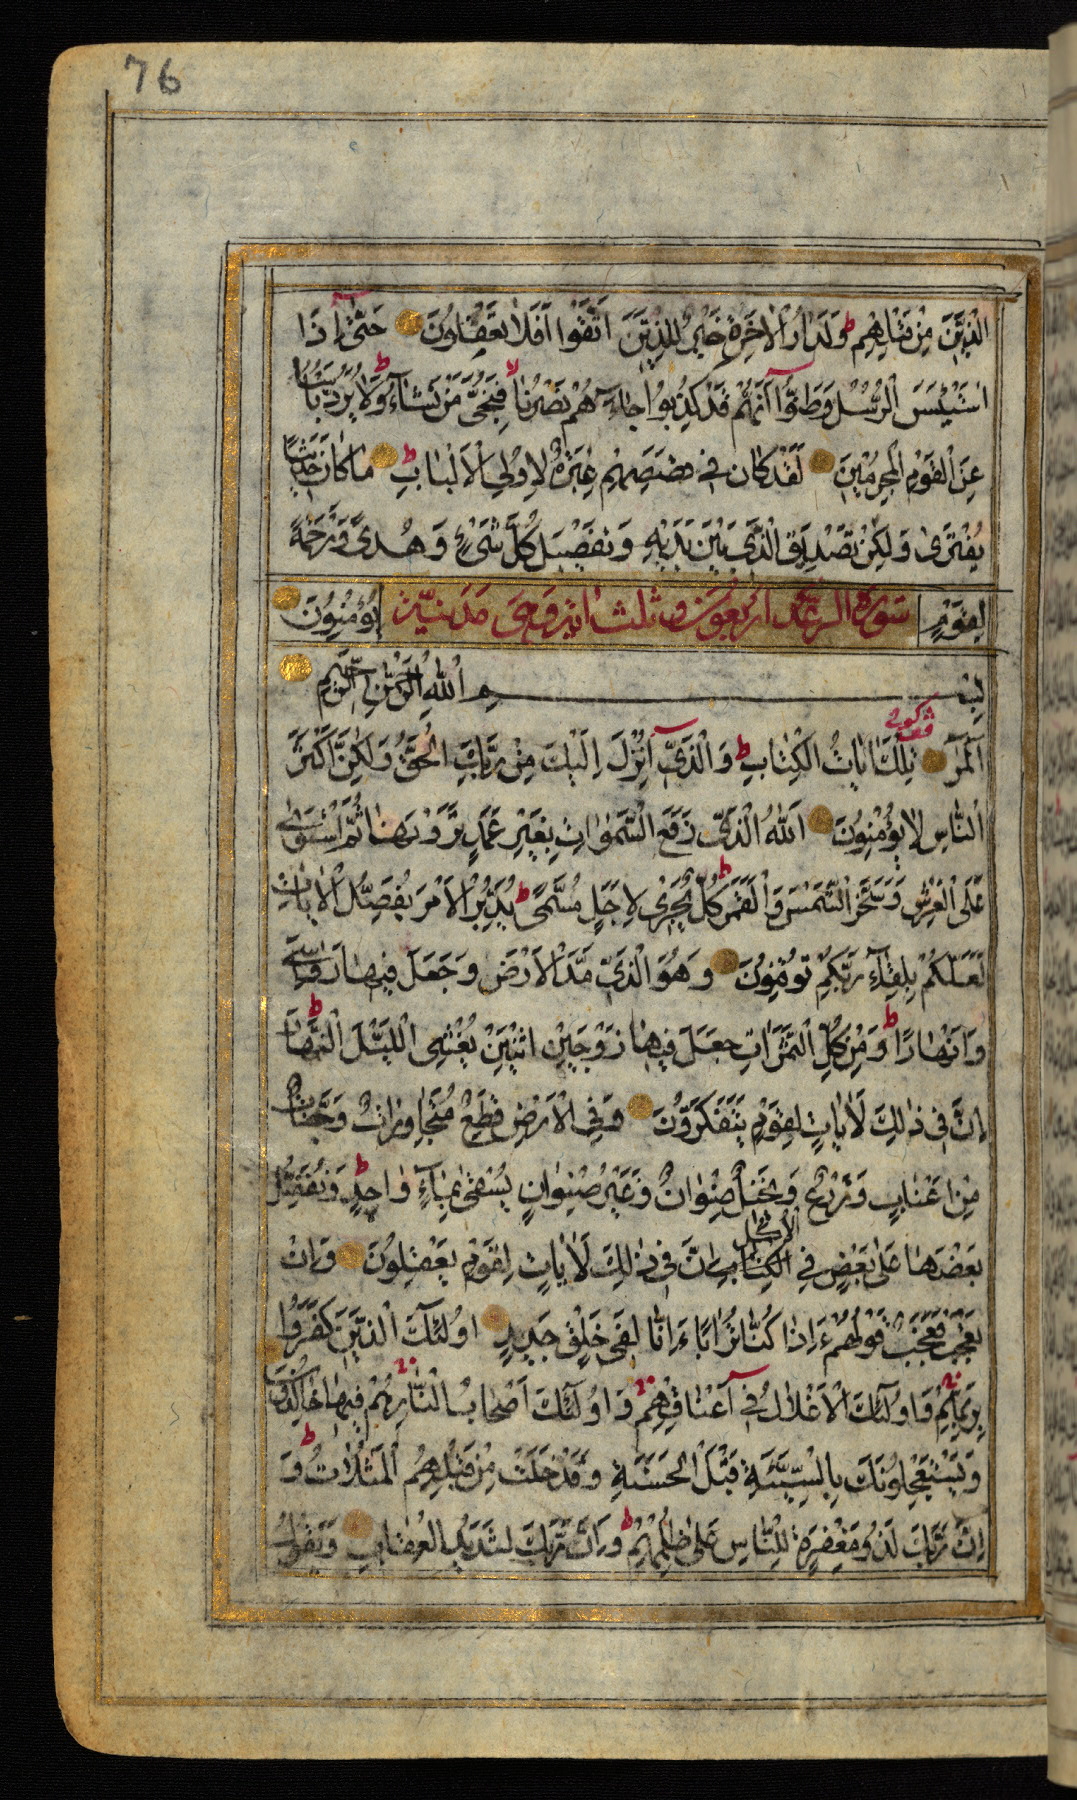 76
الَّذِينَ مِنْ قَبْلِهِمْ ط وَلَدَارُ الْاٰخِرَةِ خَيْرٌ لِلَّذِينَ اتَّقَوْا اَفَلَا تَعْقِلُونَ حَتّٰى اِذَا
اسْتَيْئَسَ الرُّسُلُ وَظَنُّوا اَنَّهُمْ قَدْ كُذِبُوا جَاءَهُمْ نَصْرُنَا لا فَنُجِّىَ مَنْ نَشَاءُ ط وَلَا يُرَدُّ بَاْسُنَا
عَنِ الْقَوْمِ الْمُجْرِمِينَ لَقَدْ كَانَ فِى قَصَصِهِمْ عِبْرَةٌ لِاُولِى الْاَلْبَابِ ط مَا كَانَ حَدِيثًا
يُفْتَرٰى وَلٰكِنْ تَصْدِيقَ الَّذِى بَيْنَ يَدَيْهِ وَتَفْصِيلَ كُلِّ شَىْءٍ وَهُدًى وَرَحْمَةً
لِقَوْمٍ سورة الرعد اربعون وثلث اية وهى مدنية يُؤْمِنُونَ
بِسْمِ اللّٰهِ الرَّحْمٰنِ الرَّحِيمِ
الٓمٓرٰ تِلْكَ اٰيَاتُ الْكِتَابِ ط وَالَّذِى اُنْزِلَ اِلَيْكَ مِنْ رَبِّكَ الْحَقُّ وَلٰكِنَّ اَكْثَرَ
النَّاسِ لَا يُؤْمِنُونَ اَللّٰهُ الَّذِى رَفَعَ السَّمٰوَاتِ بِغَيْرِ عَمَدٍ تَرَوْنَهَا ثُمَّ اسْتَوٰى
عَلَى الْعَرْشِ وَسَخَّرَ الشَّمْسَ وَالْقَمَرَ ط كُلٌّ يَجْرِى لِاَجَلٍ مُسَمًّى ط يُدَبِّرُ الْاَمْرَ يُفَصِّلُ الْاٰيَاتِ
لَعَلَّكُمْ بِلِقَاءِ رَبِّكُمْ تُوقِنُونَ وَهُوَ الَّذِى مَدَّ الْاَرْضَ وَجَعَلَ فِيهَا رَوَاسِىَ
وَاَنْهَارًا ط وَمِنْ كُلِّ الثَّمَرَاتِ جَعَلَ فِيهَا زَوْجَيْنِ اثْنَيْنِ يُغْشِى اللَّيْلَ النَّهَارَ ط
اِنَّ فِى ذٰلِكَ لَاٰيَاتٍ لِقَوْمٍ يَتَفَكَّرُونَ وَفِى الْاَرْضِ قِطَعٌ مُتَجَاوِرَاتٌ وَجَنَّاتٌ
مِنْ اَعْنَابٍ وَزَرْعٌ وَنَخِيلٌ صِنْوَانٌ وَغَيْرُ صِنْوَانٍ يُسْقٰى بِمَاءٍ وَاحِدٍ ط وَنُفَضِّلُ
بَعْضَهَا عَلٰى بَعْضٍ فِى الْكِتَابِ الْاُكُلِ اِنَّ فِى ذٰلِكَ لَاٰيَاتٍ لِقَوْمٍ يَعْقِلُونَ وَاِنْ
تَعْجَبْ فَعَجَبٌ قَوْلُهُمْ ءَاِذَا كُنَّا تُرَابًا ءَاِنَّا لَفِى خَلْقٍ جَدِيدٍ اُولٰئِكَ الَّذِينَ كَفَرُوا
بِرَبِّهِمْ وَاُولٰئِكَ الْاَغْلَالُ فِى اَعْنَاقِهِمْ وَاُولٰئِكَ اَصْحَابُ النَّارِ هُمْ فِيهَا خَالِدُونَ
وَيَسْتَعْجِلُونَكَ بِالسَّيِّئَةِ قَبْلَ الْحَسَنَةِ وَقَدْ خَلَتْ مِنْ قَبْلِهِمُ الْمَثُلَاتُ ط وَ
اِنَّ رَبَّكَ لَذُو مَغْفِرَةٍ لِلنَّاسِ عَلٰى ظُلْمِهِمْ ط وَاِنَّ رَبَّكَ لَشَدِيدُ الْعِقَابِ وَيَقُولُ